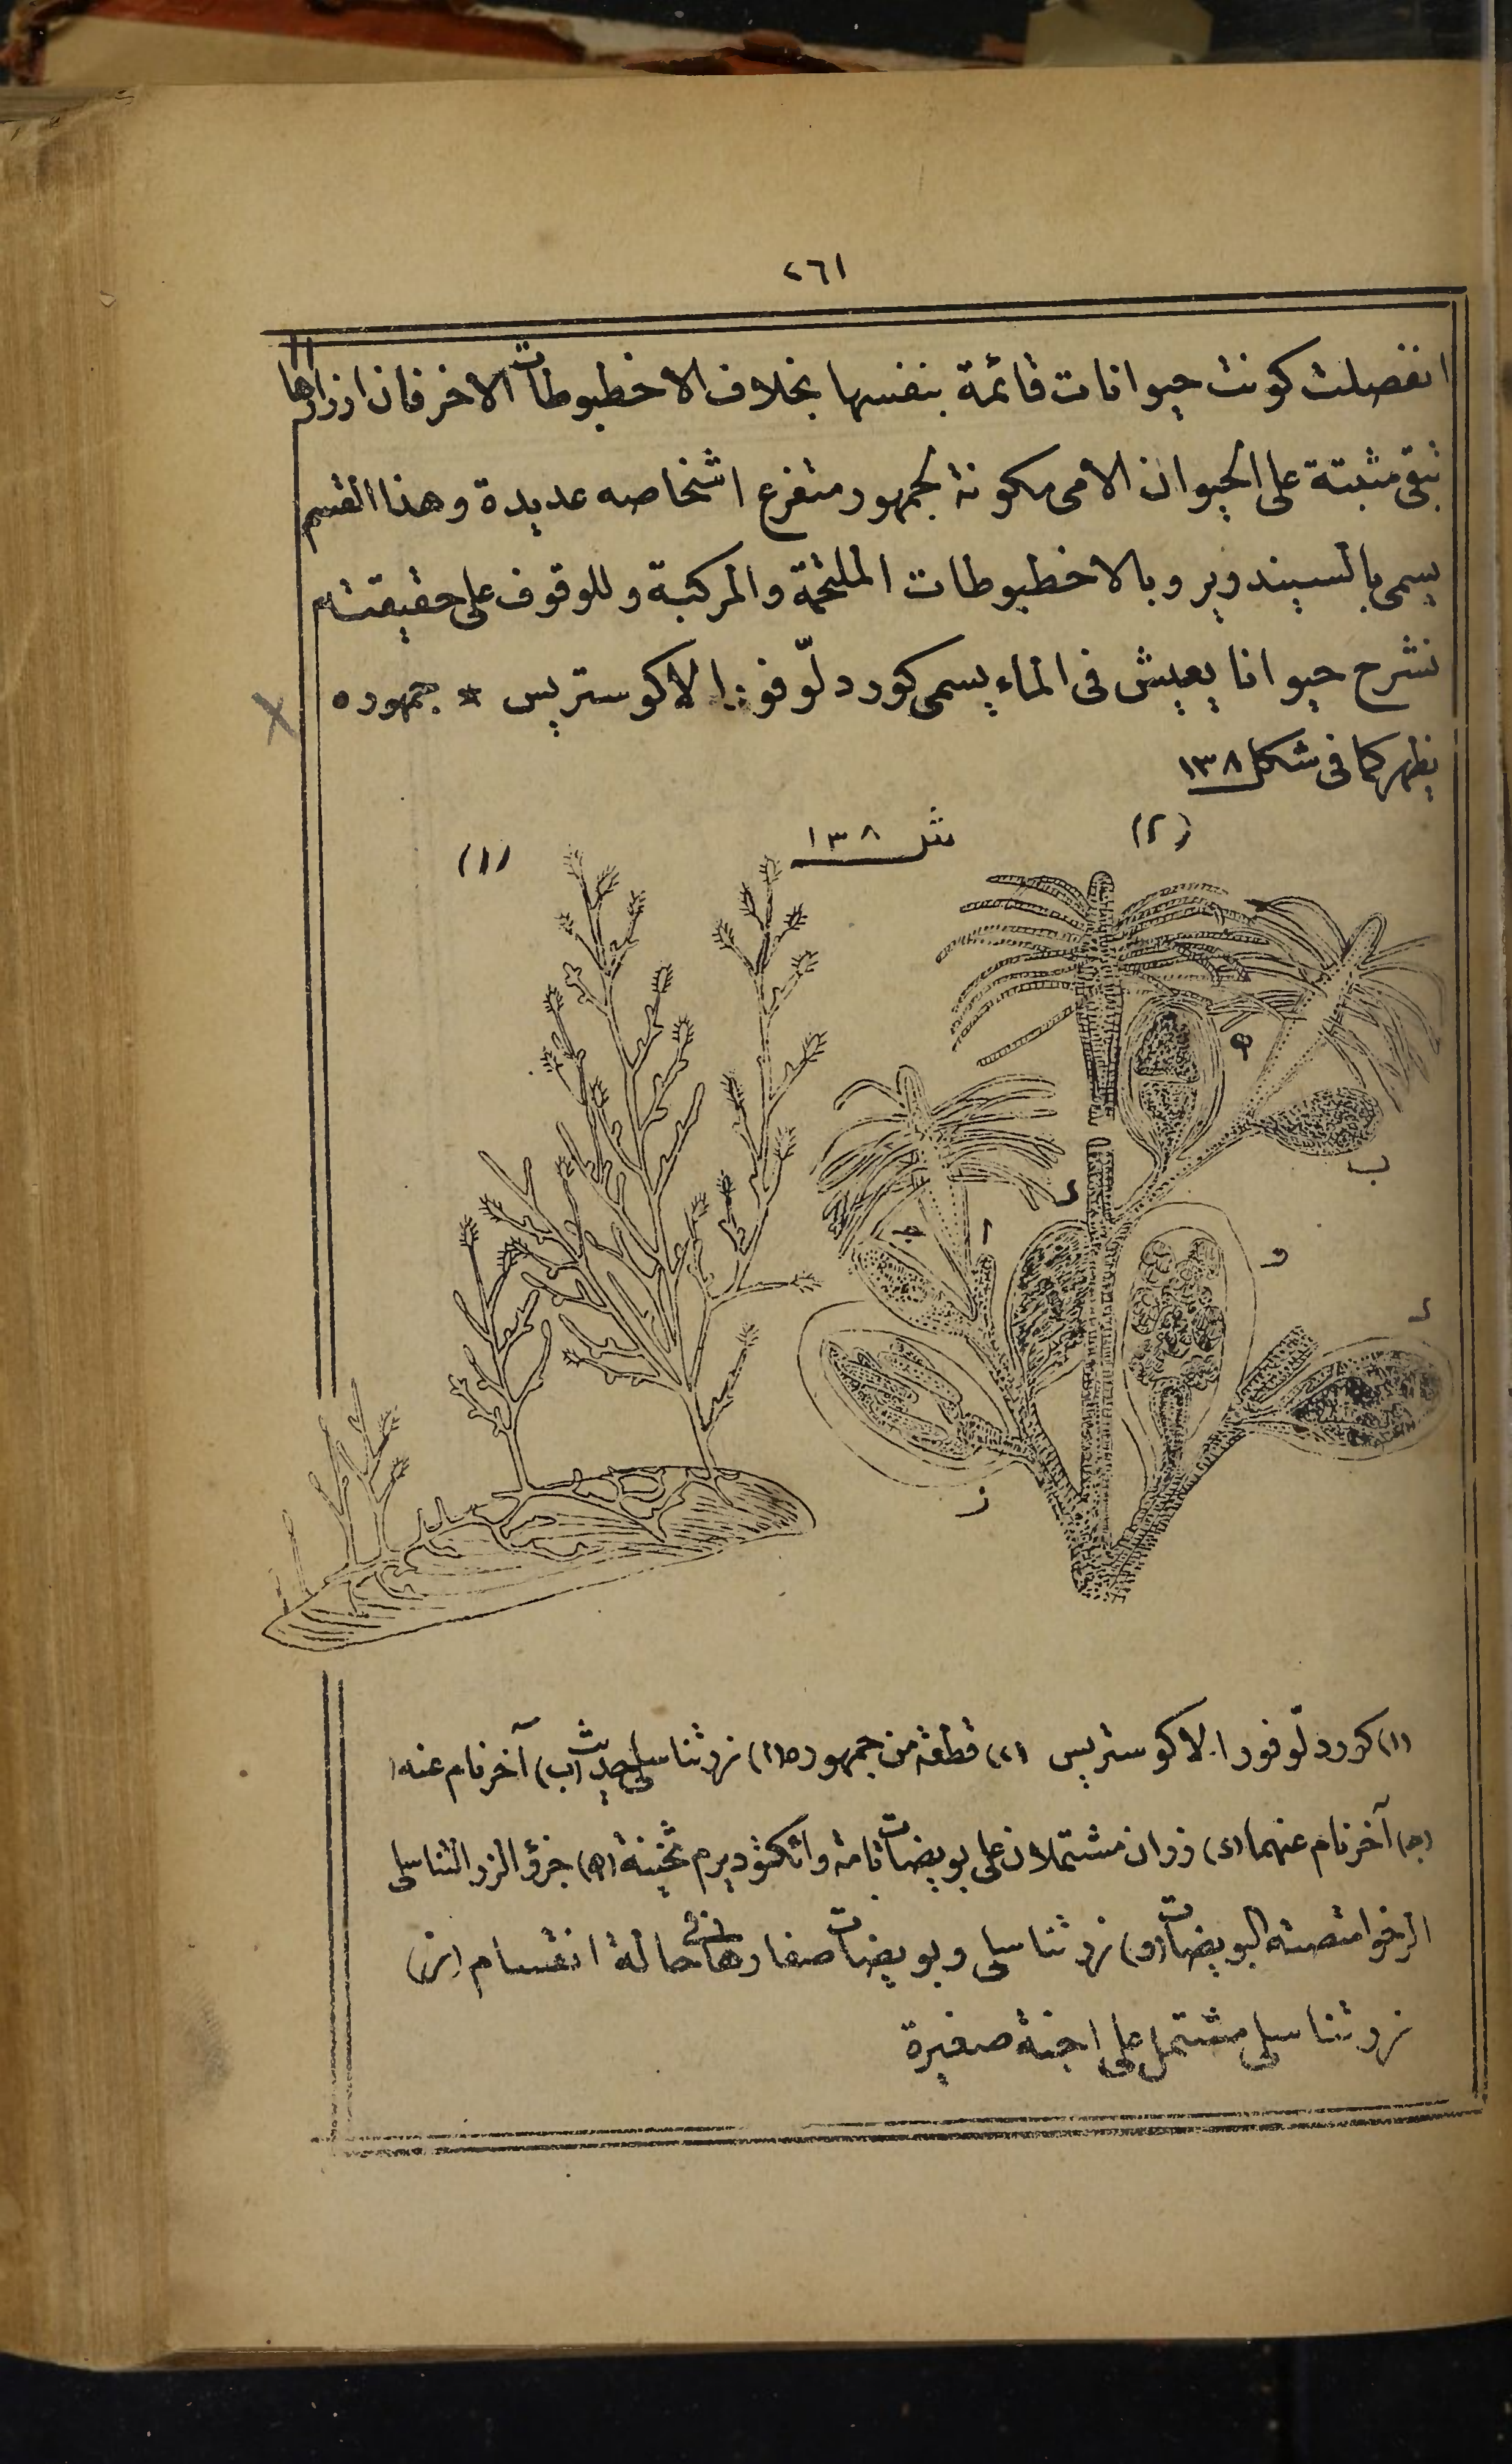 ٢٦١
انفصلت كونت حيوانات قائمة بنفسها بخلاف الاخطبوطات الاخر فان ازرارها
تبقى مثبتة على الحيوان الامى مكونة لجمهور متفرع اشخاصه عديدة وهذا القسم
يسمى بالسيندوير وبالاخطبوطات الملتحمة والمركبة وللوقوف على حقيقته
نشرح حيوانا يعيش فى الماء يسمى كوردلّوفورا لاكوستريس * جمهوره
يظهر كما فى شكل ١٣٨
(٢) شكل ١٣٨ (١)
ه
ب
د
ا
ج
و
د
ز
(١) كوردلّوفورا لاكوستريس (٢) قطعة من جمهوره (ا) زر تناسلى حديث (ب) آخر نام عنه
(ج) آخر نام عنهما (د) زران مشتملان على بويضات تامة واتكتوديرم ثخينة (ه) جزؤ الزر التناسلى
الرخو امتصته البويضات (و) زر تناسلى وبويضات صغارها فى حالة انقسام (ز)
زر تناسلى مشتمل على اجنة صغيرة